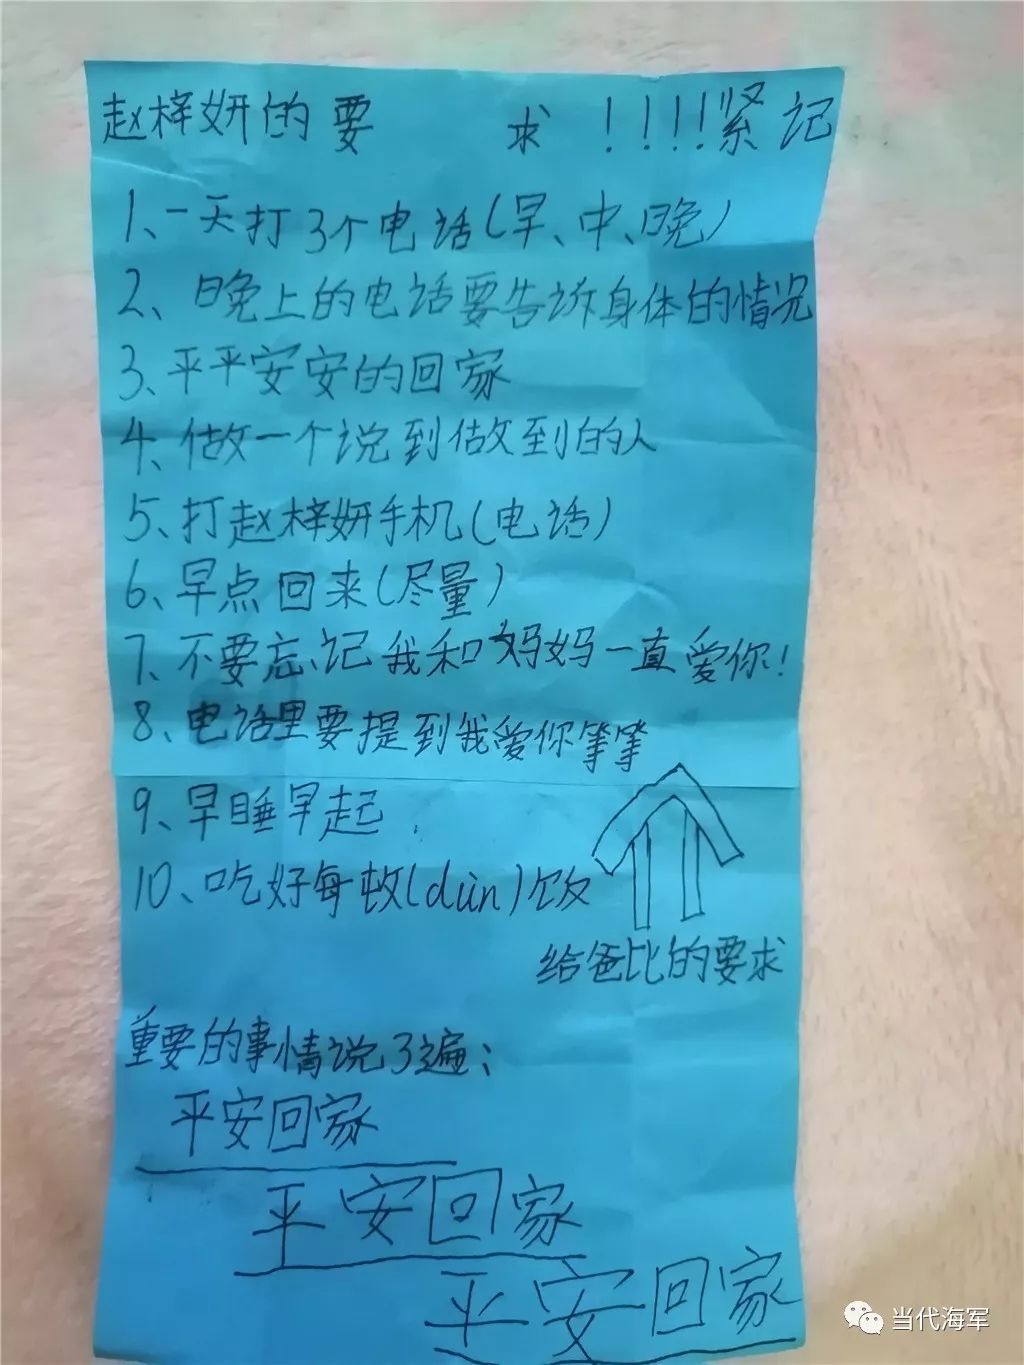 赵梓妍的要 求 !!!!紧记
1、一天打3个电话(早、中、晚)
2、晚上的电话要告诉身体的情况
3、平平安安的回家
4、做一个说到做到的人
5、打赵梓妍手机(电话)
6、早点回来(尽量)
7、不要忘记我和妈妈一直爱你!
8、电话里要提到我爱你等等
9、早睡早起
10、吃好每顿(dùn)饭
给爸比的要求
重要的事情说3遍:
平安回家
平安回家
平安回家
当代海军